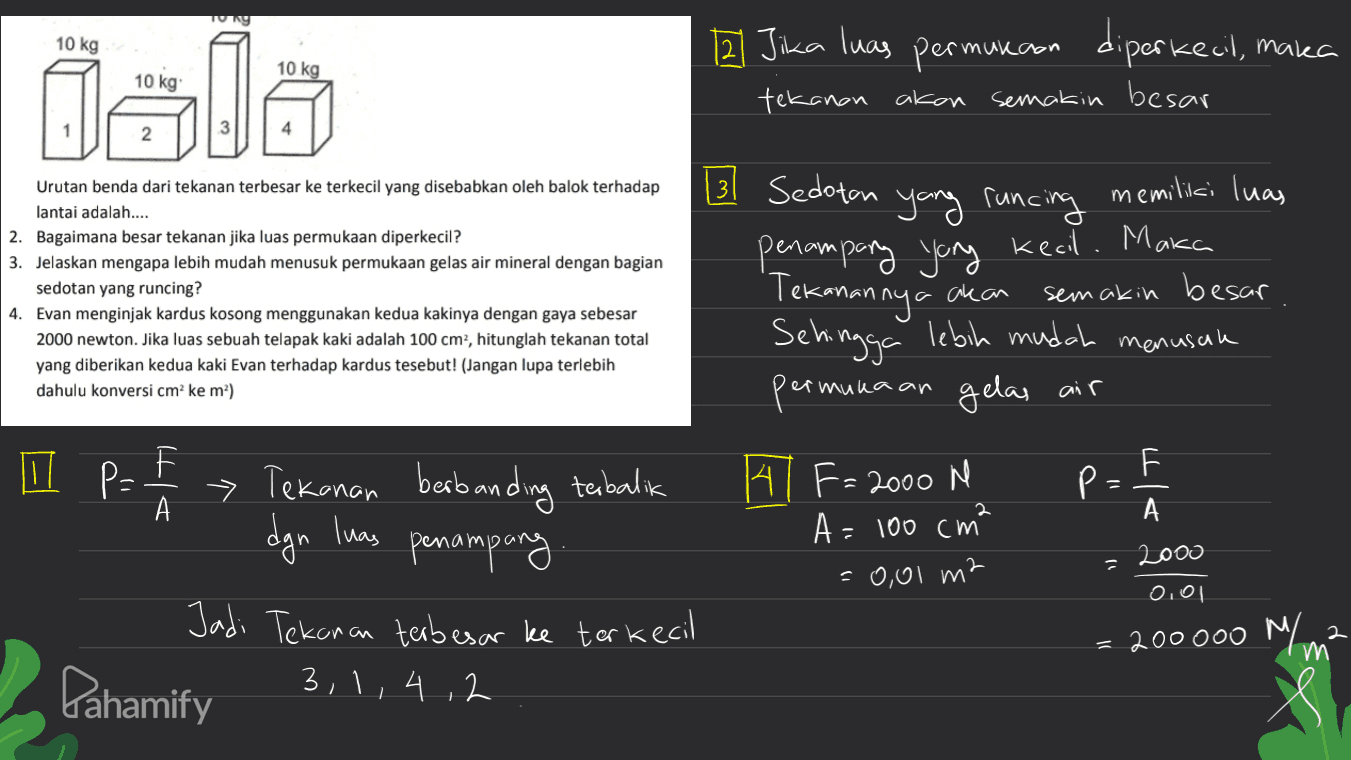 10 kg
10 kg
10 kg
10 kg
1
2
3
4
Urutan benda dari tekanan terbesar ke terkecil yang disebabkan oleh balok terhadap
lantai adalah....
2. Bagaimana besar tekanan jika luas permukaan diperkecil?
3. Jelaskan mengapa lebih mudah menusuk permukaan gelas air mineral dengan bagian
sedotan yang runcing?
4. Evan menginjak kardus kosong menggunakan kedua kakinya dengan gaya sebesar
2000 newton. Jika luas sebuah telapak kaki adalah 100 cm², hitunglah tekanan total
yang diberikan kedua kaki Evan terhadap kardus tesebut! (Jangan lupa terlebih
dahulu konversi cm² ke m²)
2 Jika luas permukaan diperkecil, maka
tekanan akan semakin besar
3 Sedotan yang runcing memiliki luas
penampang yang kecil. Maka
Tekanannya akan semakin besar.
Sehingga lebih mudah menusuk
permukaan gelas air
1 P = F/A → Tekanan berbanding terbalik
dgn luas penampang.
Jadi Tekanan terbesar ke terkecil
3, 1, 4, 2
4 F = 2000 N
A = 100 cm²
= 0,01 m²
P = F/A
= 2000/0,01
= 200 000 N/m²
Pahamify